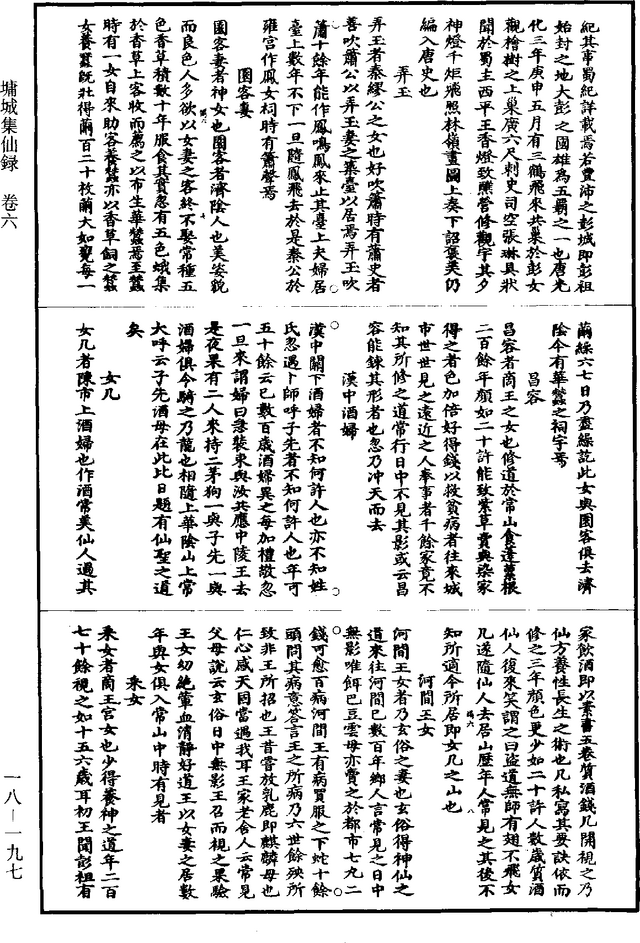 紀其事蜀紀詳載焉若豐沛之彭城即彭祖
始封之地大彭之國雄為五霸之一也唐光
化三年庚申五月有三鶴飛來共巢於彭女
觀檜樹之上巢廣六尺刺史司空張琳具狀
聞於蜀主西平王香燈致醮營修觀宇其夕
神燈千炬飛照林嶺畫圖上奏下詔褒美仍
編入唐史也
弄玉
弄玉者秦繆公之女也好吹簫時有蕭史者
善吹簫公以弄玉妻之築臺以居焉弄玉吹
簫十餘年能作鳳鳴鳳來止其臺上夫婦居
臺上數年不下一旦隨鳳飛去於是秦公於
雍宮作鳳女祠時有簫聲焉
園客妻
園客妻者神女也園客者濟陰人也美姿貌
而良邑人多欲以女妻之客終不娶常種五
色香草積數十年服食其實忽有五色蛾集
於香草上客收而薦之以布生華蠶焉至蠶
時有一女自來助客養蠶亦以香草飼之蠶
女養蠶既壯得繭百二十枚繭大如甕每一
繭繰六七日乃盡繰訖此女與園客俱去濟
陰今有華蠶之祠宇焉
昌容
昌容者商王之女也修道於常山食蓬虆根
二百餘年顏如二十許能致紫草賣與染家
得之者色加倍好得錢以救貧病者往來城
市世世見之遠近之人奉事者千餘家竟不
知其所修之道常行日中不見其影或云昌
容能鍊其形者也忽乃沖天而去
漢中酒婦
漢中關下酒婦者不知何許人也亦不知姓
氏忽遇卜師呼子先者不知何許人也年可
五十餘云已數百歲酒婦異之每加禮敬忽
一旦來謂婦曰急裝束與汝共應中陵王去
是夜果有二人來持二茅狗一與子先一與
酒婦俱令騎之乃龍也相隨上華陰山上常
大呼云子先酒母在此比日題有仙聖之道
矣
女几
女几者陳市上酒婦也作酒常美仙人過其
家飲酒即以素書五卷質酒錢几開視之乃
仙方養性長生之術也几私寫其要訣依而
修之三年顏色更少如二十許人數歲質酒
仙人復來笑謂之曰盜道無師有翅不飛女
几遂隨仙人去居山歷年人常見之其後不
知所適今所居即女几之山也
河間王女
河間王女者乃玄俗之妻也玄俗得神仙之
道來往河間已數百年鄉人言常見之日中
無影唯餌巴豆雲母亦賣之於都市七丸二
錢可愈百病河間王有病買服之下蛇十餘
頭問其病意答言王之所病乃六世餘殃所
致非王所招也王昔嘗放乳鹿即麒麟母也
仁心感天固當遇我耳王家老舍人云常見
父母說云玄俗日中無影王召而視之果驗
王女幼絕葷血清靜好道王以女妻之居數
年與女俱入常山中時有見者
采女
采女者商王宮女也少得養神之道年二百
七十餘視之如十五六歲耳初王聞彭祖有
墉城集仙録 卷六
一八—一九七